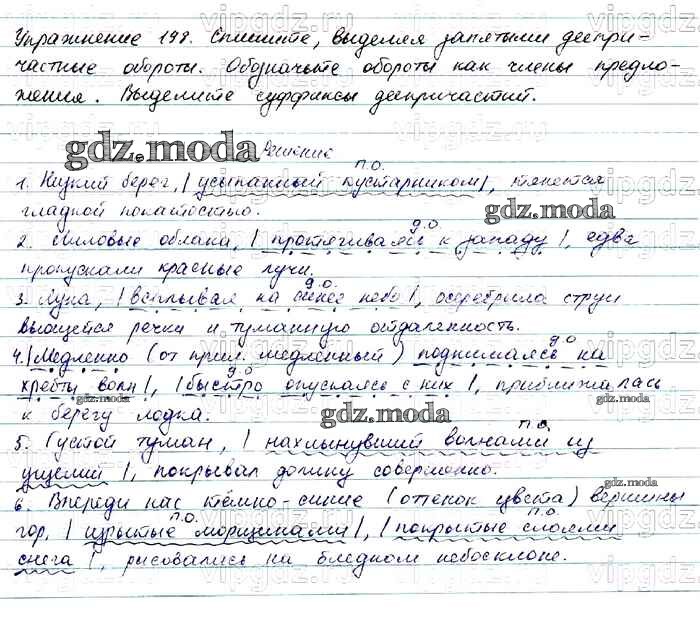 Упражнение 198. Спишите, выделяя запятыми деепри-
частные обороты. Обозначьте обороты как члены предло-
жения. Выделите суффиксы деепричастий.
gdz.moda Решение
п.о.
1. Низкий берег, | усыпанный кустарником |, тянется
гладкой покатостью.
gdz.moda
д.о
2. Лиловые облака, | протягиваясь к западу |, едва
пропускали красные лучи.
д.о.
3. Луна, | всплывая на синее небо |, осеребрила струи
вьющейся речки и туманную отдаленность.
д.о
4. | Медленно (от прил. медленный) поднимаясь на
д.о.
хребты волн |, | быстро опускаясь с них |, приближалась
к берегу лодка.
gdz.moda
п.о.
5. Густой туман, | нахлынувший волнами из
ущелий |, покрывал долину совершенно.
gdz.moda
6. Впереди нас тёмно-синие (оттенок цвета) вершины
п.о. п.о.
гор, | изрытые морщинами |, | покрытые слоями
снега |, рисовались на бледном небосклоне.
gdz.moda
vipgdz.ru